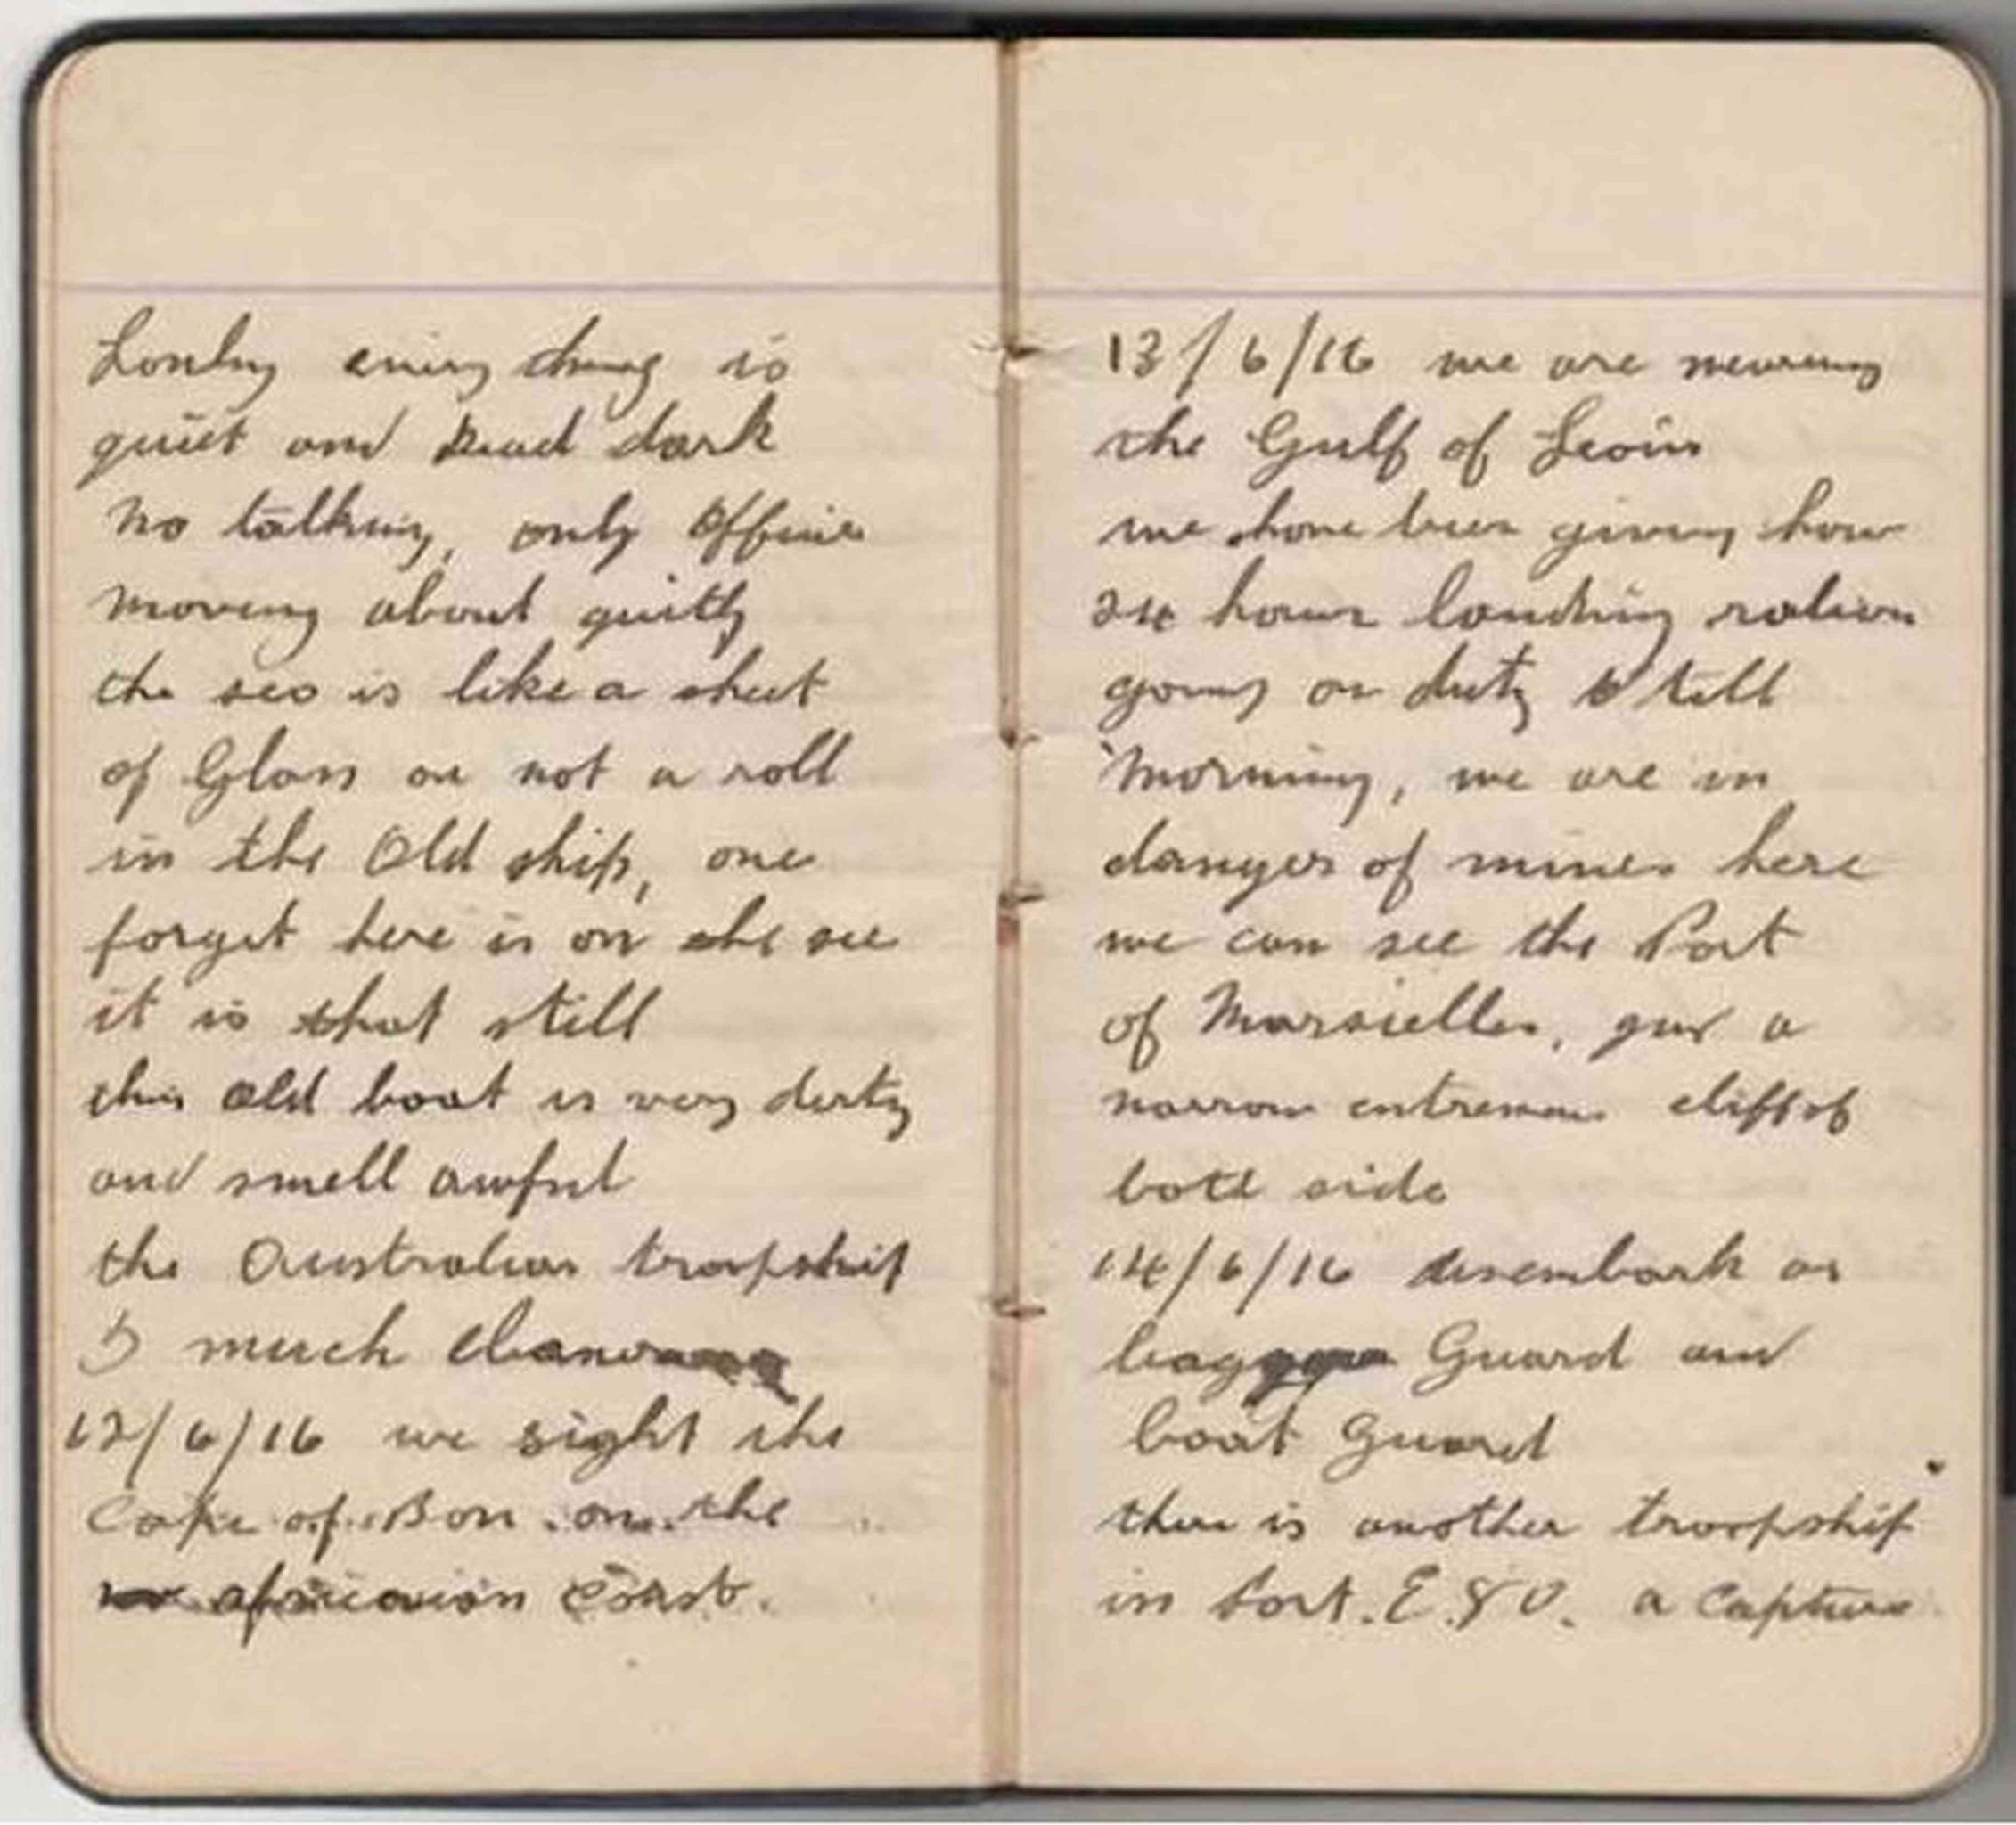 Lonly every thing is
quiet and Dead dark
No talking, only Officers
moving about quitly
the sea is like a sheet
of Glass on not a roll
in the Old ship, one
forget here is on the see
it is that still
this old boat is very dirty
and smell awful
the Australian troopship
is much cleaner
12/6/16 we sight the
Cape of Bon on the
africanian Coast.
13/6/16 we are nearing
the Gulf of Leoin
we have been giving how
24 hours landing ration
going on duty to till
Morning, we are in
danger of mines here
we can see the Port
of Marsielles, a
narrow cliff of
both side
14/6/16 disembark as
baggage Guard and
boat Guard
there is another troopship
in Port. a Capture